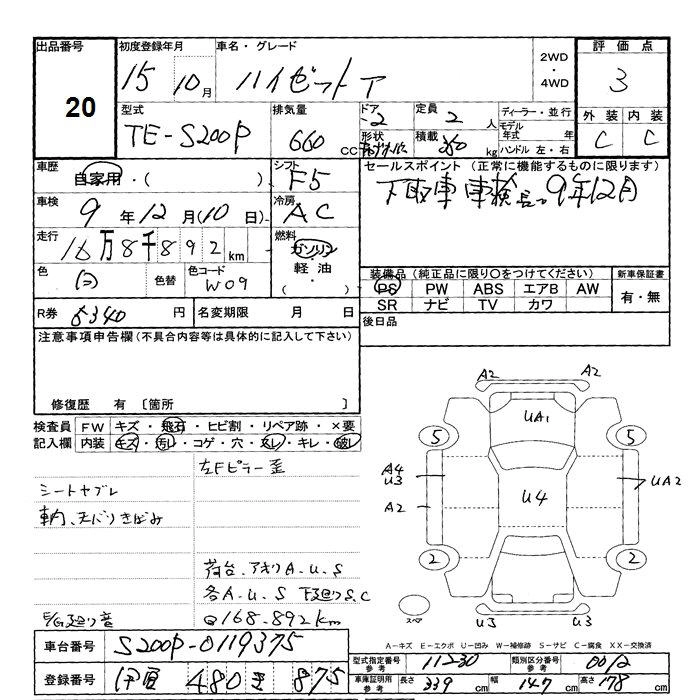 出品番号 20
初度登録年月 15 10月
車名・グレード ハイゼット
2WD・4WD
評価点 3
外装 内装
C C
型式 TE-S200P
排気量 660 CC
ドア 2
形状
定員 2 人
積載 350 kg
ディーラー・並行
モデル年式 年
ハンドル 左・右
車歴 自家用・( )
シフト F5
車検 9年12月(10日)
冷房 AC
走行 16万8千892km
燃料 ガソリン 軽油・( )
色 白 色替 色コード W09
R券 円 名変期限 月 日
セールスポイント(正常に機能するものに限ります)
下取車 車検長っ9年12月
装備品(純正品に限り○をつけてください)
PS PW ABS エアB AW
SR ナビ TV カワ
新車保証書
有・無
後日品
注意事項申告欄(不具合内容等は具体的に記入して下さい)
修復歴 有 〔箇所 〕
検査員記入欄
FW キズ・飛石・ヒビ割・リペア跡・×要
内装 キズ・汚レ・コゲ・穴・スレ・キレ・破レ
左Fピラー歪
シートヤブレ
車内、天バリきばみ
荷台、アオリA.U.S
各A.U.S 下廻りS.C
E/G廻り音
168.892km
車台番号 S200P-0119375
登録番号 480 875
A2 A2
UA1
5 5
A4
U3
A2
U4
UA2
2 2
スペア
U3 U3
A-キズ E-エクボ U-凹み W-補修跡 S-サビ C-腐食 XX-交換済
型式指定番号 参考 11230
類別区分番号 参考 0012
車庫証明用 参考 長さ 339 cm 幅 147 cm 高さ 178 cm